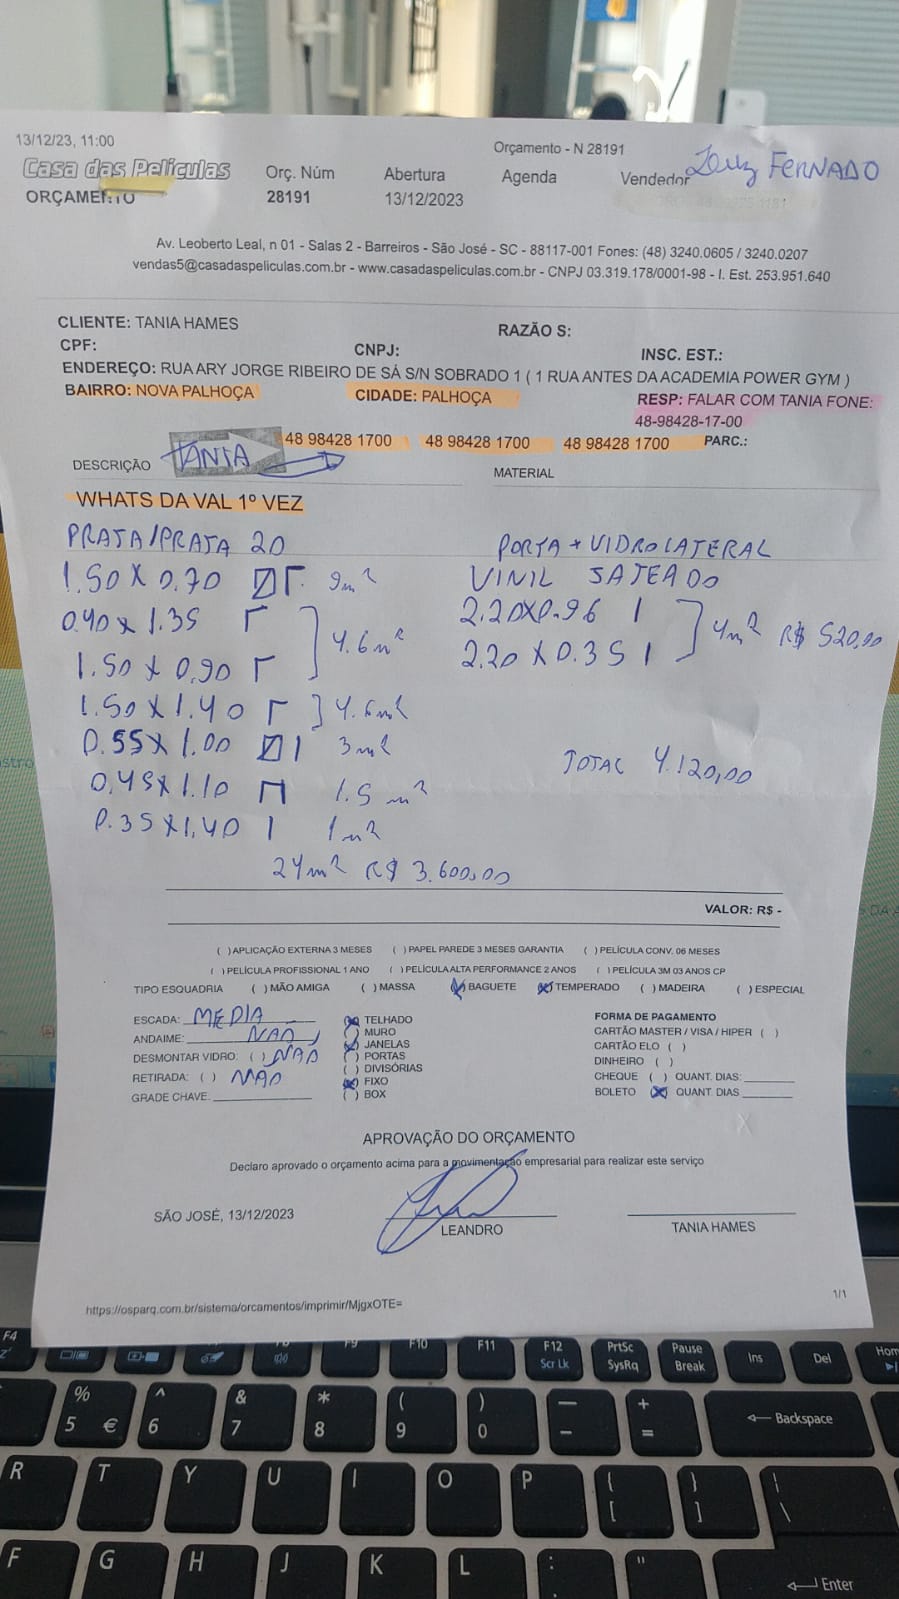 13/12/23, 11:00
Orçamento - N 28191
Casa das Películas
Orç. Núm
Abertura
Agenda
Vendedor
Luiz FERNADO
ORÇAMENTO
28191
13/12/2023
Av. Leoberto Leal, n 01 - Salas 2 - Barreiros - São José - SC - 88117-001 Fones: (48) 3240.0605 / 3240.0207
vendas5@casadaspeliculas.com.br - www.casadaspeliculas.com.br - CNPJ 03.319.178/0001-98 - I. Est. 253.951.640
CLIENTE: TANIA HAMES
RAZÃO S:
CPF:
CNPJ:
INSC. EST.:
ENDEREÇO: RUA ARY JORGE RIBEIRO DE SÁ S/N SOBRADO 1 ( 1 RUA ANTES DA ACADEMIA POWER GYM )
BAIRRO: NOVA PALHOÇA
CIDADE: PALHOÇA
RESP: FALAR COM TANIA FONE:
48-98428-17-00
48 98428 1700
48 98428 1700
48 98428 1700
PARC.:
DESCRIÇÃO
TANIA
MATERIAL
WHATS DA VAL 1º VEZ
PRATA/PRATA 20
1.50 X 0,70 9m²
0.40 X 1.35
1.50 X 0,90
4.6m²
1.50 X 1.40 4.6m²
0.55 X 1.00 3m²
0,45 X 1.10 1.5 m²
0.35 X 1,40 1m²
24m² R$ 3.600,00
PORTA + VIDRO LATERAL
VINIL JATEADO
2.20 X 0.96
2.20 X 0.35
4m² R$ 520,00
TOTAL 4.120,00
VALOR: R$ -
( )APLICAÇÃO EXTERNA 3 MESES ( )PAPEL PAREDE 3 MESES GARANTIA ( )PELÍCULA CONV. 06 MESES
( )PELÍCULA PROFISSIONAL 1 ANO ( )PELÍCULA ALTA PERFORMANCE 2 ANOS ( )PELÍCULA 3M 03 ANOS CP
TIPO ESQUADRIA ( )MÃO AMIGA ( )MASSA (X)BAGUETE (X)TEMPERADO ( )MADEIRA ( )ESPECIAL
ESCADA: MEDIA
ANDAIME: NAO
DESMONTAR VIDRO: ( ) NAO
RETIRADA: ( ) NAO
GRADE CHAVE.
(X)TELHADO
( )MURO
(X)JANELAS
( )PORTAS
( )DIVISÓRIAS
(X)FIXO
( )BOX
FORMA DE PAGAMENTO
CARTÃO MASTER / VISA / HIPER ( )
CARTÃO ELO ( )
DINHEIRO ( )
CHEQUE ( ) QUANT. DIAS:
BOLETO (X) QUANT. DIAS
APROVAÇÃO DO ORÇAMENTO
Declaro aprovado o orçamento acima para a movimentação empresarial para realizar este serviço
SÃO JOSÉ, 13/12/2023
LEANDRO
TANIA HAMES
https://osparq.com.br/sistema/orcamentos/imprimir/MjgxOTE=
1/1
F4 F9 F10 F11 F12 PrtSc Pause Ins Del Hom
Scr Lk SysRq Break
% ^ & * ( ) — +
5 € 6 7 8 9 0 – = Backspace
R T Y U I O P { [ } ] \
F G H J K L : " Enter